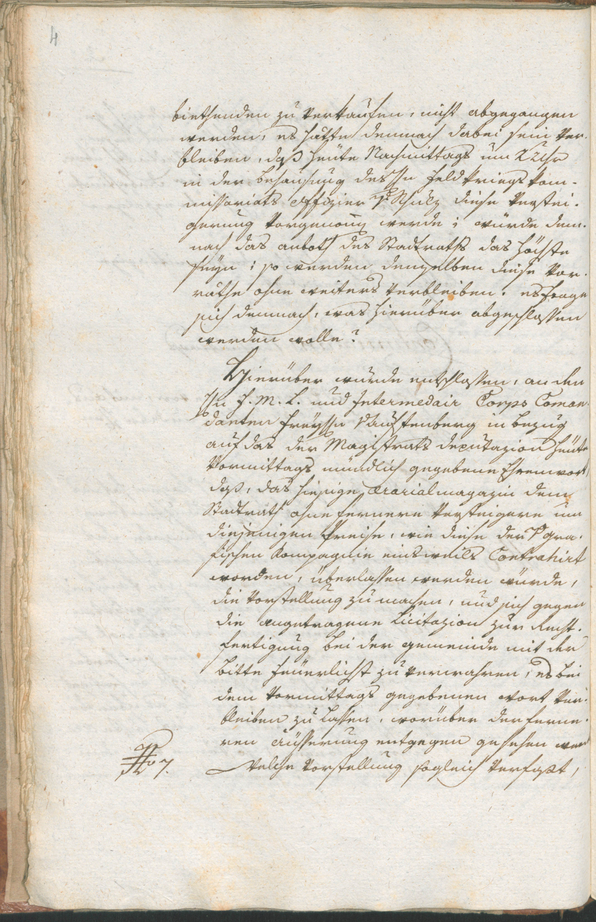 4
biethenden zu verkaufen, nicht abgegangen
werden, es hätte demnach dabei sein Ver-
bleiben, daß heute Nachmittags um Uhr
in der Behausung des Hn Feldkriegskom-
missariats Offizier diese Verstei-
gerung vorgenomn werde; würde dem-
nach das anboth des Stadtraths das höchste
seyn; so werden demselben diese Vor-
räthe ohne weiters verbleiben. es frage
sich demnach, was hierüber abgeschlossen
werden wolle?
Hierüber wurde entschlossen, an den
Hn F. M. L. und Intermedair Corps Coman-
danten Freyhn in bezug
auf das der Magistrats deputazion heute
Vormittags mündlich gegebene Ehrenwort
daß, das hiesige Ararialmagazin dem
Stadtrath ohne fernere Versteigerung um
diejenigen Preise, wie diese der
Kompagnie einsweils Contrahirt
worden, überlassen werden würde,
die Vorstellung zu machen, und sich gegen
die angetragene Licitazion zur Recht-
fertigung bei der gemeinde mit der
bitte feuerlichst zu verwahren, es bei
dem Vormittags gegebenen wort ver-
bleiben zu lassen, worüber der ferne-
ren äusserung entgegen gesehen
No 7. Welche Vorstellung sogleich verfaßt,